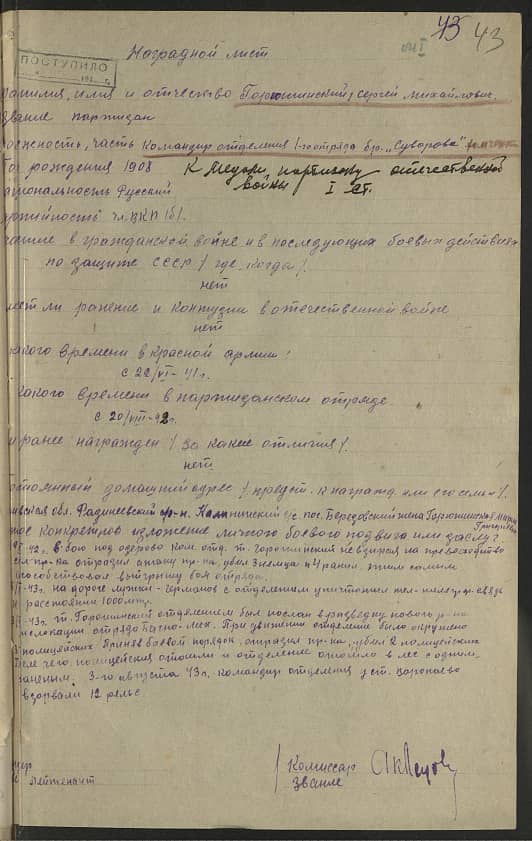 43 43
ПОСТУПИЛО
Наградной лист
амилия, имя и отчество Горюшинский, Сергей Михайлович.
Звание партизан
олжность, часть Командир отделения 1-го отряда бр. „Суворова"
рождения 1908 К медали партизану отечественной
войны I ст.
ациональность Русский
артийность чл. ВКП(б).
астие в гражданской войне и в последующих боевых действиях
по защите СССР / где, когда /.
нет
меет ли ранение и контузии в отечественной войне
нет
какого времени в Красной армии
с 22/VI-41г.
какого времени в партизанском отряде
с 20/VIII-42г.
м ранее награжден / за какие отличия /.
нет
остоянный домашний адрес / предст. к награжд. или его семьи /.
обл. р-н с/с пос. Березовский жена Мария
ткое конкретное изложение личного боевого подвига или заслуг
42г. в бою под озерово ком. отд. т. не взирая на превосходство
ил пр-ка отразил атаку пр-ка, убил 3 немца и 4 ранил, этим самым
способствовал выигрышу боя отряда.
43г. на дороге Лужки - Германов с отделением уничтожил тел-телегр. связь
расстоянии 1000 метр.
43г. т. с отделением был послан в разведку нового р-на
дислокации отряда При движении отделение было окружено
полицейских. Приняв боевой порядок, отразил пр-ка, убил 2 полицейских
после чего полицейские отошли и отделение отошло в лес с одним
раненым. 3-го августа 43г. командир отделения у ст. Воропаево
взорвали 12 рельс.
Комиссар
лейтенант Звание